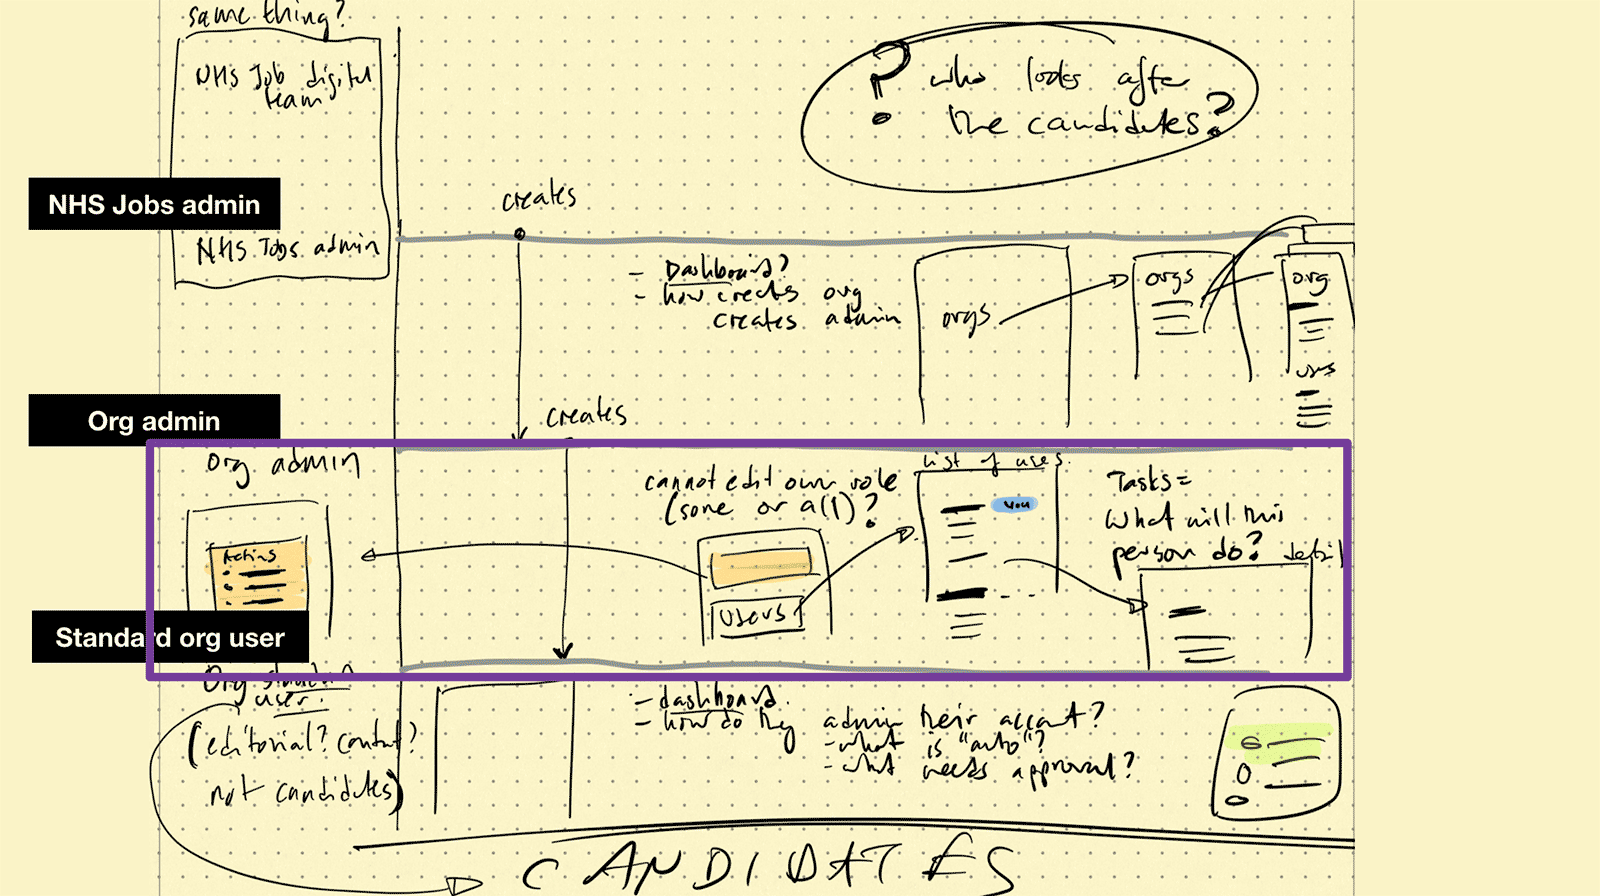 same thing?
NHS Job digital
team
? who looks after
the candidates?
NHS Jobs admin
creates
NHS Jobs admin
- Dashboard?
- how creates org
creates admin
orgs
orgs
org
users
Org admin
creates
org admin
cannot edit own role
(some or all)?
List of users.
you
Tasks=
What will this
person do?
detail
Actions
USERS
Standard org user
Org standard
user.
(editorial? content?
not candidates)
- dashboard.
- how do they admin their account?
- what is "auto"?
- what needs approval?
CANDIDATES